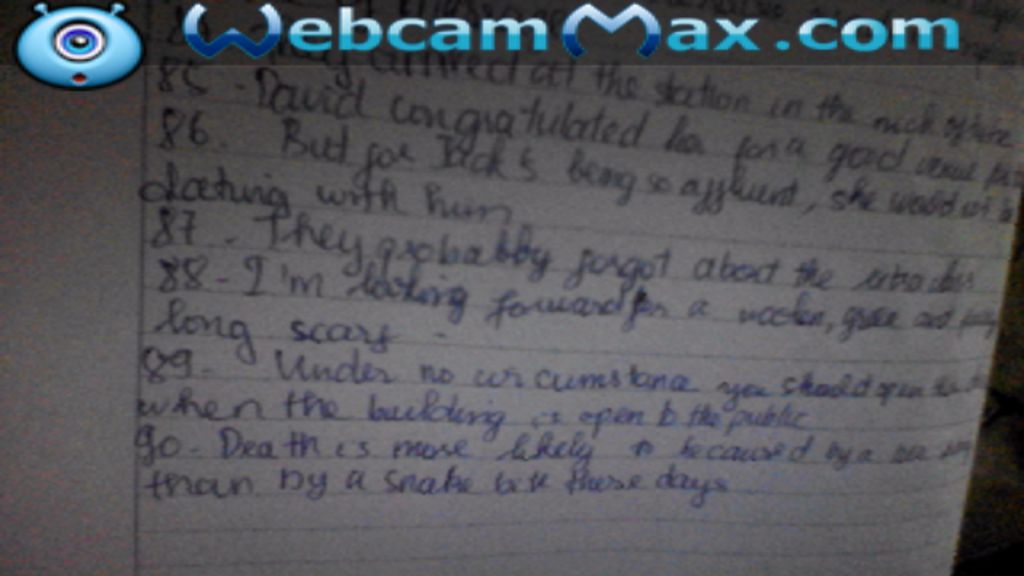 WebcamMax.com
arrived at the station in the nick of time
85 - David congratulated her for a good
86. But for Jack's being so affluent, she would
dating with him.
87. They probably forgot about the
88 - I'm looking forward for a woolen, green and
long scarf.
89. Under no circumstance you should open the
when the building is open to the public
90 - Death is more likely to be caused by a bee
than by a snake bite these days